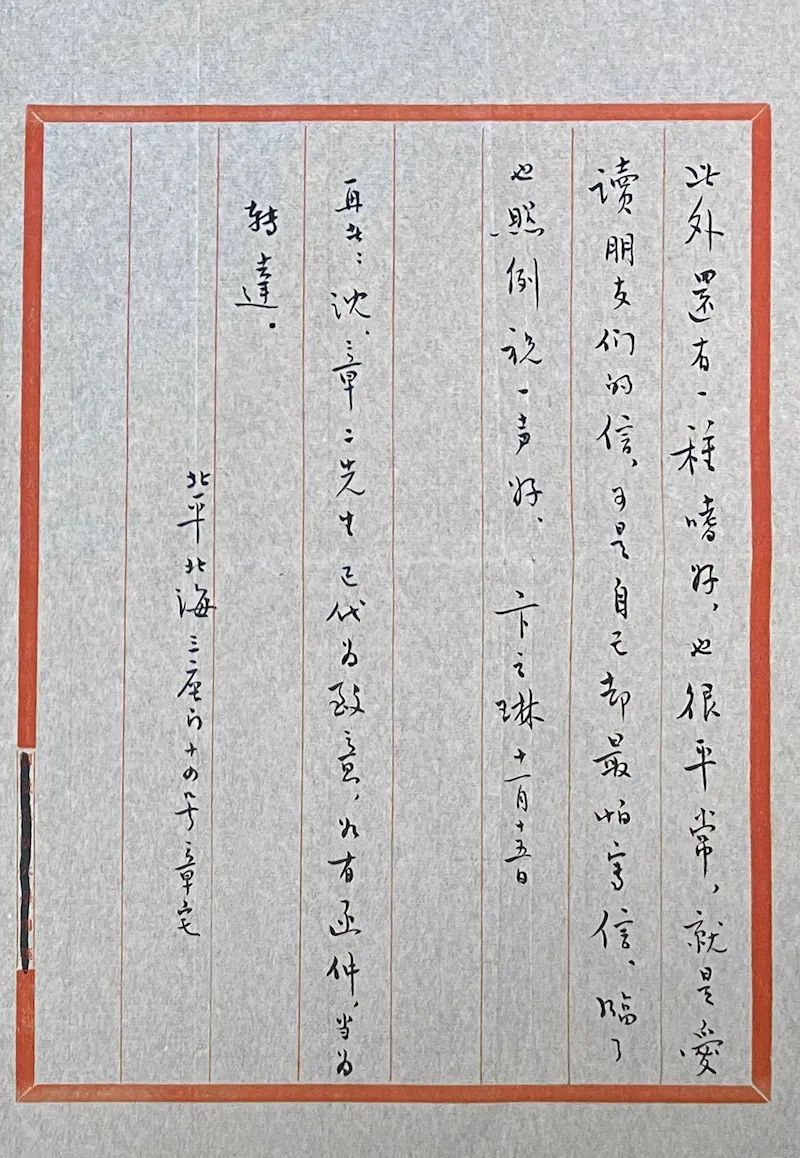 此外還有一種嗜好，也很平常，就是愛
讀朋友们的信、可是自己却最怕寫信、臨了
也照例祝一声好、卞之琳 十一月十五日
再者：沈、章二先生已代为致意，如有函件，当为
轉達。
北平北海三座门十四号章宅